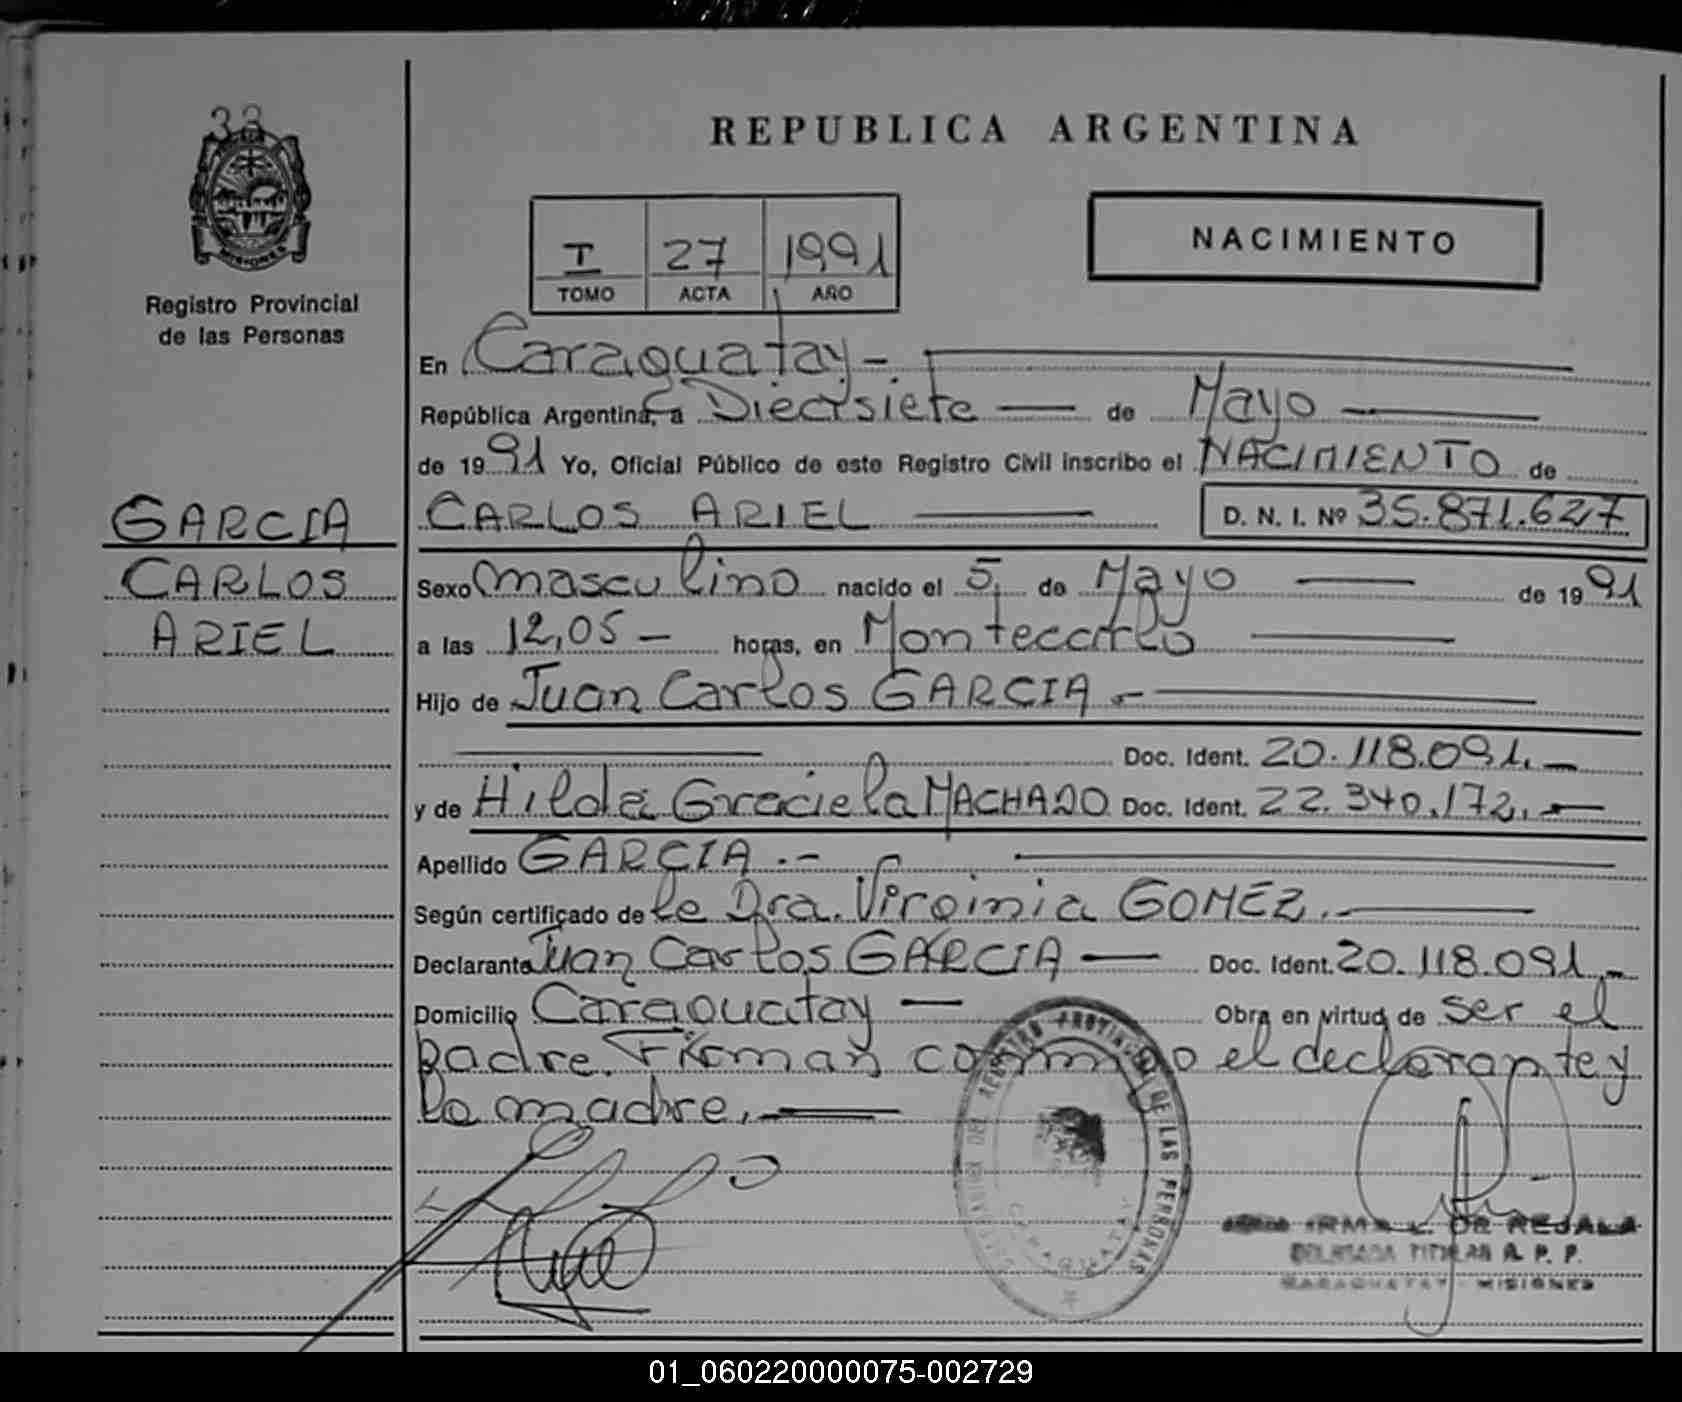 33
MISIONES
Registro Provincial
de las Personas
GARCIA
CARLOS
ARIEL
REPUBLICA ARGENTINA
I 27 1991
TOMO ACTA AÑO
NACIMIENTO
En Caraguatay -
República Argentina, a Diecisiete de Mayo
de 1991 Yo, Oficial Público de este Registro Civil inscribo el NACIMIENTO de
CARLOS ARIEL D. N. I. Nº 35.871.627
Sexo masculino nacido el 5 de Mayo de 1991
a las 12,05 - horas, en Montecarlo
Hijo de Juan Carlos GARCIA.-
Doc. Ident. 20.118.091.-
y de Hilda Graciela MACHADO Doc. Ident. 22.340.172.-
Apellido GARCIA.-
Según certificado de la Dra. Virginia GOMEZ.
Declarante Juan Carlos GARCIA Doc. Ident. 20.118.091.-
Domicilio Caraguatay - Obra en virtud de ser el
padre. Firman conmigo el declarante y
la madre.
REGISTRO PROVINCIAL DE LAS PERSONAS
CARAGUATAY
IRMA L. DE REJALA
DELEGADA TITULAR R. P. P.
CARAGUATAY - MISIONES
01_060220000075-002729